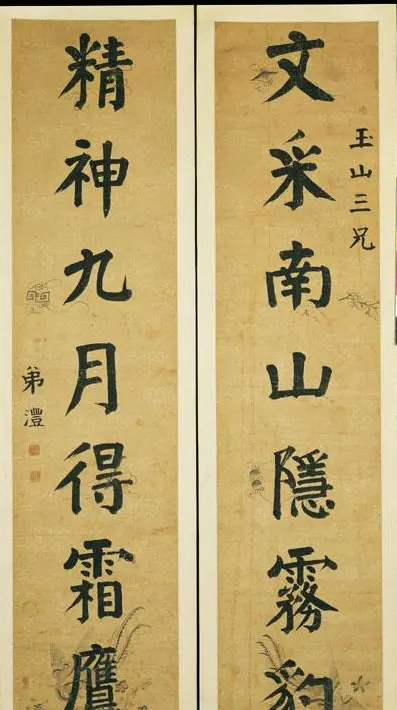 玉山三兄
文采南山隱霧豹
精神九月得霜鷹
弟灃